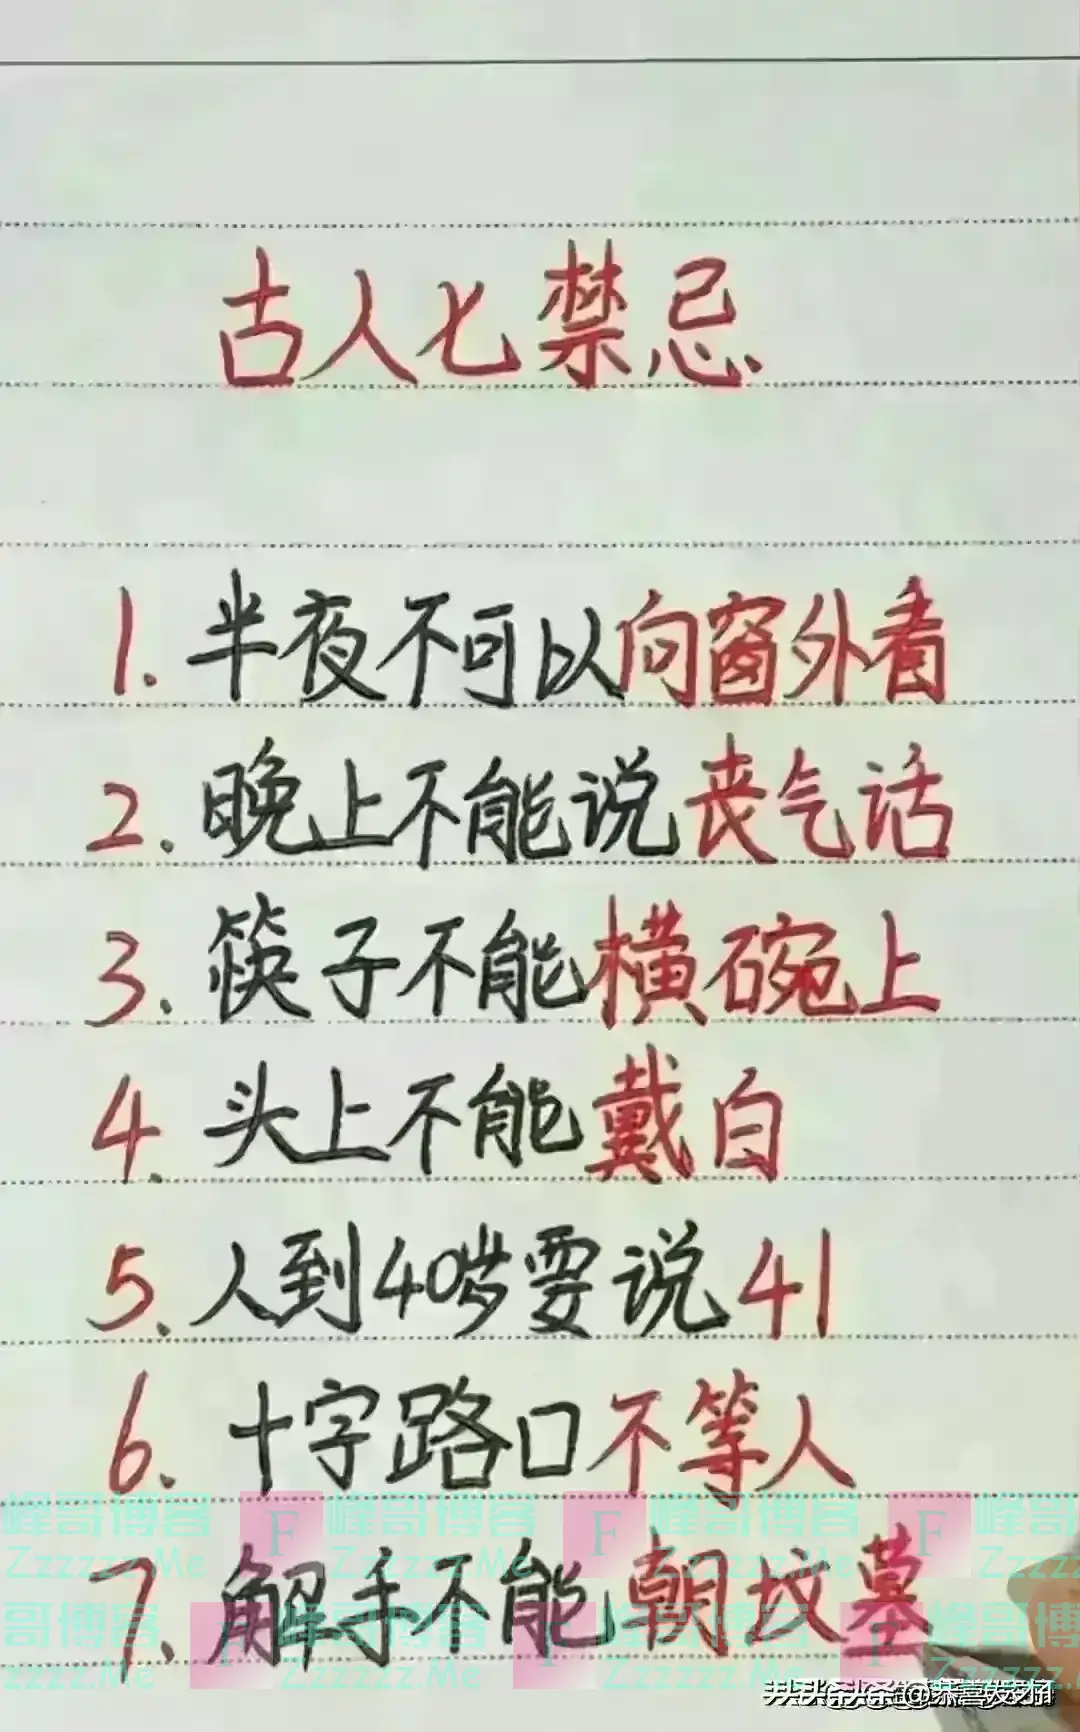 古人七禁忌
1. 半夜不可以向窗外看
2. 晚上不能说丧气话
3. 筷子不能横碗上
4. 头上不能戴白
5. 人到40岁要说41
6. 十字路口不等人
峰哥博客 F 峰哥博客 F 峰哥博客 F 峰哥
Zzzzzz.Me Zzzzzz.Me Zzzzzz.Me Zzzzz
7. 解手不能朝坟墓
哥博客 峰哥博客 峰哥博客 峰哥博
zzzz.Me Zzzzzz.Me Zzzzzz.Me Zzzzzz.M